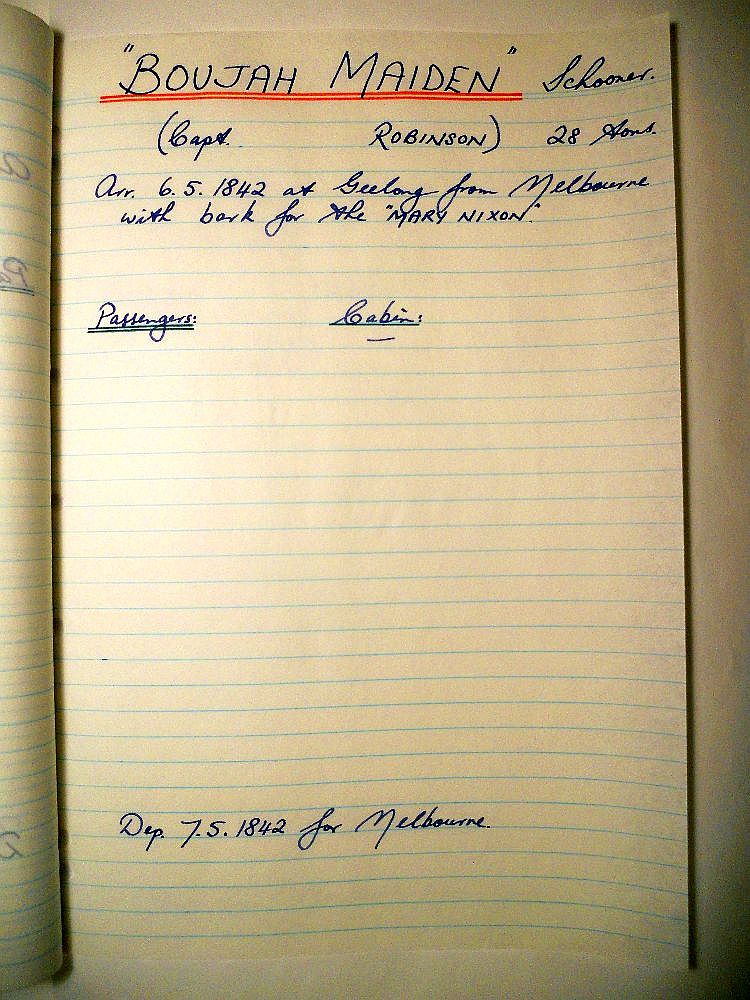 "BOUJAH MAIDEN" Schooner.
(Capt. ROBINSON) 28 tons.
Arr. 6.5.1842 at Geelong from Melbourne
with bark for the "MARY NIXON".
Passengers: Cabin:
Dep. 7.5.1842 for Melbourne.